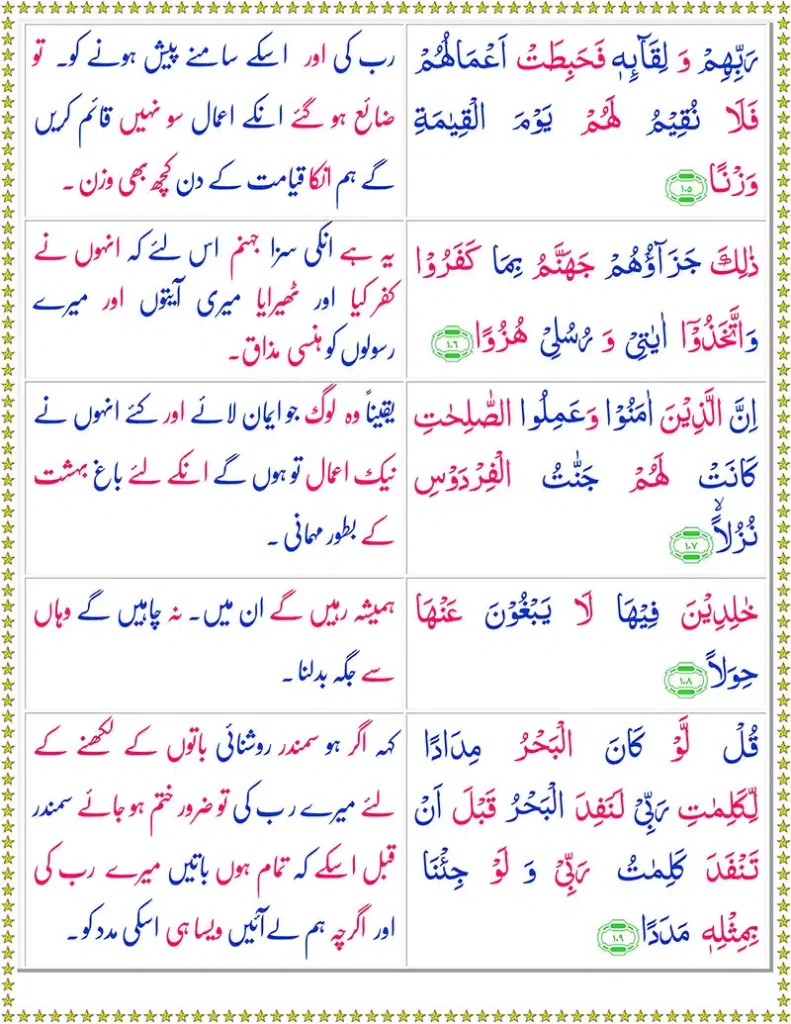 رَبِّهِمْ وَ لِقَآئِهٖ فَحَبِطَتْ اَعْمَالُهُمْ
فَلَا نُقِيْمُ لَهُمْ يَوْمَ الْقِيٰمَةِ
وَزْنًا ١٠٥
رب کی اور اسکے سامنے پیش ہونے کو۔ تو
ضائع ہو گئے انکے اعمال سو نہیں قائم کریں
گے ہم انکا قیامت کے دن کچھ بھی وزن ۔
ذٰلِكَ جَزَآؤُهُمْ جَهَنَّمُ بِمَا كَفَرُوْا
وَاتَّخَذُوْٓا اٰيٰتِيْ وَ رُسُلِيْ هُزُوًا ١٠٦
یہ ہے انکی سزا جہنم اس لئے کہ انہوں نے
کفر کیا اور ٹھیرایا میری آیتوں اور میرے
رسولوں کو ہنسی مذاق۔
اِنَّ الَّذِيْنَ اٰمَنُوْا وَعَمِلُوا الصّٰلِحٰتِ
كَانَتْ لَهُمْ جَنّٰتُ الْفِرْدَوْسِ
نُزُلًا ۙ ١٠٧
یقیناً وہ لوگ جو ایمان لائے اور کئے انہوں نے
نیک اعمال تو ہوں گے انکے لئے باغ بہشت
کے بطور مہمانی ۔
خٰلِدِيْنَ فِيْهَا لَا يَبْغُوْنَ عَنْهَا
حِوَلًا ١٠٨
ہمیشہ رہیں گے ان میں۔ نہ چاہیں گے وہاں
سے جگہ بدلنا ۔
قُلْ لَّوْ كَانَ الْبَحْرُ مِدَادًا
لِّكَلِمٰتِ رَبِّيْ لَنَفِدَ الْبَحْرُ قَبْلَ اَنْ
تَنْفَدَ كَلِمٰتُ رَبِّيْ وَ لَوْ جِئْنَا
بِمِثْلِهٖ مَدَدًا ١٠٩
کہہ اگر ہو سمندر روشنائی باتوں کے لکھنے کے
لئے میرے رب کی تو ضرور ختم ہو جائے سمندر
قبل اسکے کہ تمام ہوں باتیں میرے رب کی
اور اگرچہ ہم لے آئیں ویسا ہی اسکی مدد کو ۔